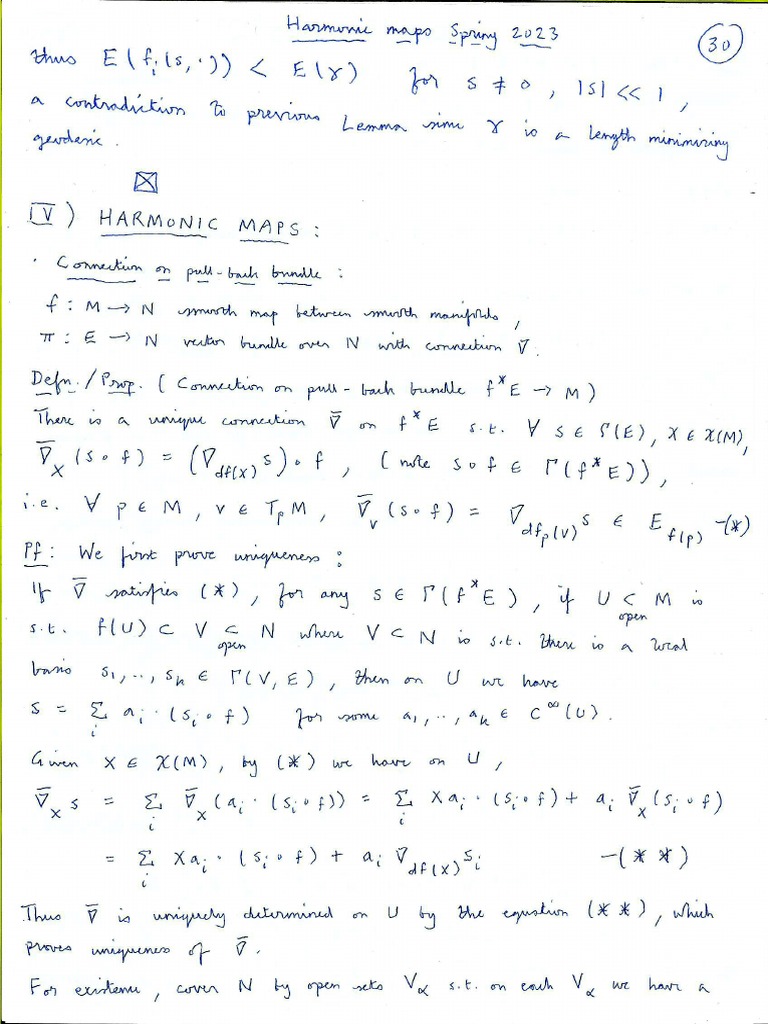 Harmonic maps Spring 2023
30
thus E(f_i(s,·)) < E(γ) for s ≠ 0, |s| << 1,
a contradiction to previous Lemma since γ is a length minimizing
geodesic.
IV) HARMONIC MAPS:
· Connection on pull-back bundle:
f : M → N smooth map between smooth manifolds,
π : E → N vector bundle over N with connection ∇.
Defn./Prop. (Connection on pull-back bundle f*E → M)
There is a unique connection ∇̄ on f*E s.t. ∀ s ∈ Γ(E), X ∈ X(M),
∇̄_X (s∘f) = (∇_{df(X)} s)∘f, (note s∘f ∈ Γ(f*E)),
i.e. ∀ p ∈ M, v ∈ T_pM, ∇̄_v (s∘f) = ∇_{df_p(v)} s ∈ E_{f(p)} –(*)
Pf: We first prove uniqueness:
If ∇̄ satisfies (*), for any s ∈ Γ(f*E), if U ⊂ M is
open
s.t. f(U) ⊂ V ⊂ N where V ⊂ N is s.t. there is a local
open
basis s_1,..,s_k ∈ Γ(V,E), then on U we have
s = Σ_i a_i·(s_i∘f) for some a_1,..,a_k ∈ C^∞(U).
Given X ∈ X(M), by (*) we have on U,
∇̄_X s = Σ_i ∇̄_X (a_i·(s_i∘f)) = Σ_i Xa_i·(s_i∘f) + a_i ∇̄_X (s_i∘f)
= Σ_i Xa_i·(s_i∘f) + a_i ∇_{df(X)} s_i –(**)
Thus ∇̄ is uniquely determined on U by the equation (**), which
proves uniqueness of ∇̄.
For existence, cover N by open sets V_α s.t. on each V_α we have a